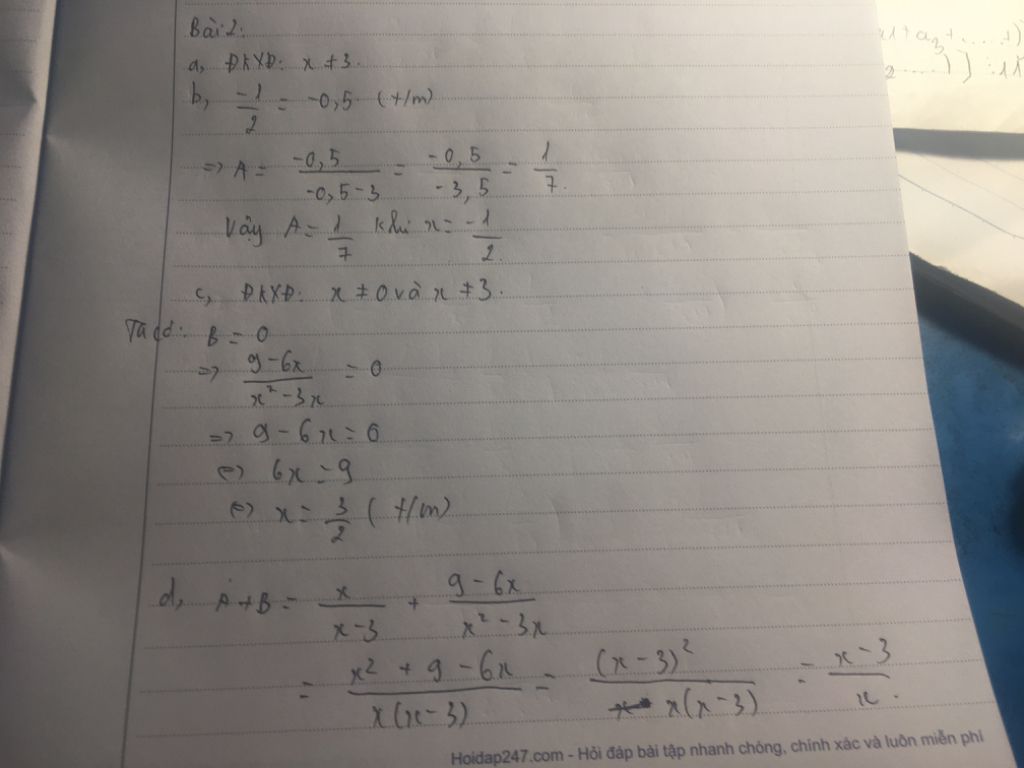 Bài 2:
a, ĐKXĐ: x ≠ 3.
b, -1/2 = -0,5 (t/m)
=> A = -0,5/(-0,5-3) = -0,5/(-3,5) = 1/7.
Vậy A = 1/7 khi x = -1/2.
c, ĐKXĐ: x ≠ 0 và x ≠ 3.
Ta có: B = 0
=> (9-6x)/(x²-3x) = 0
=> 9-6x = 0
<=> 6x = 9
<=> x = 3/2 (t/m)
d, A+B = x/(x-3) + (9-6x)/(x²-3x)
= (x²+9-6x)/(x(x-3)) = (x-3)²/(x(x-3)) = (x-3)/x.
Hoidap247.com - Hỏi đáp bài tập nhanh chóng, chính xác và luôn miễn phí